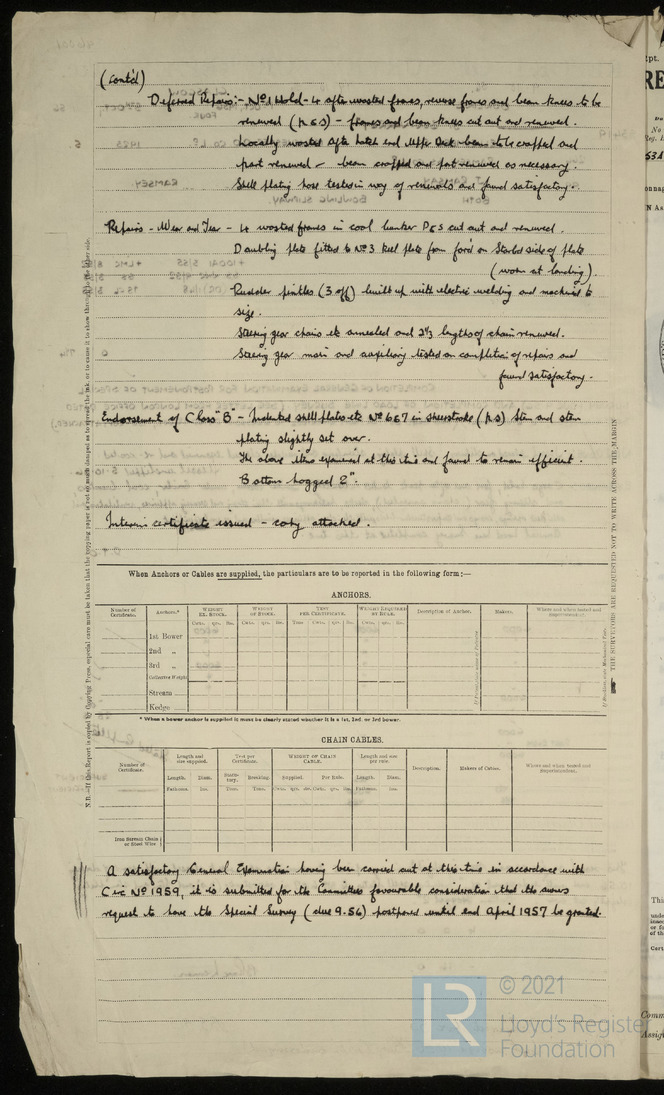 (Contd)
Deferred Repairs:- No 1 Hold - 4 after wasted frames, reverse frames and beam knees to be
renewed (P & S) - frames and beam knees cut out and renewed.
Locally wasted after hatch end Upper Deck beam to be cropped and
part renewed - beam cropped and part renewed as necessary.
Shell plating hose tested in way of renewals and found satisfactory.
Repairs - Wear and Tear - 4 wasted frames in coal bunker P & S cut out and renewed.
Doubling plate fitted to No 3 keel plate from ford on Starbd side of plate
(worn at landing).
Rudder pintles (3 off) built up with electric welding and machined to
size.
Steering gear chains etc annealed and lengths of chain renewed.
Steering gear main and auxiliary tested on completion of repairs and
found satisfactory.
Endorsement of Class "B" - Indented shell plates etc No 6 & 7 in sheerstrake (P, S) Stem and stem
plating slightly set over.
The above items examined at this time and found to remain efficient.
Bottom hogged 2".
Interim certificate issued - copy attached.
When Anchors or Cables are supplied, the particulars are to be reported in the following form:—
ANCHORS.
Number of Certificate. Anchors.* WEIGHT EX. STOCK. WEIGHT OF STOCK. TEST PER CERTIFICATE. WEIGHT REQUIRED BY RULE. Description of Anchor. Makers. Where and when tested and Superintendent.
Cwts. qrs. lbs. Cwts. qrs. lbs. Tons Cwt. qrs. lbs. Cwts. qrs. lbs.
1st Bower
2nd „
3rd „
Collective Weight
Stream
Kedge
* When a bower anchor is supplied it must be clearly stated whether it is a 1st, 2nd, or 3rd bower.
CHAIN CABLES.
Number of Certificate. Length and size supplied. Test per Certificate. WEIGHT OF CHAIN CABLE. Length and size per rule. Description. Makers of Cables. Where and when tested and Superintendent.
Length. Diam. Statutory. Breaking. Supplied. Per Rule. Length. Diam.
Fathoms. Ins. Tons. Tons. Cwts. qrs. lbs. Cwts. qrs. lbs. Fathoms. Ins.
Iron Stream Chain
or Steel Wire
A satisfactory General Examination having been carried out at this time in accordance with
Circ No 1959, it is submitted for the Committee's favourable consideration that the owners
request to have the Special Survey (due 9.56) postponed until end April 1957 be granted.
THE SURVEYORS ARE REQUESTED NOT TO WRITE ACROSS THE MARGIN
© 2021
Lloyd's Register
Foundation